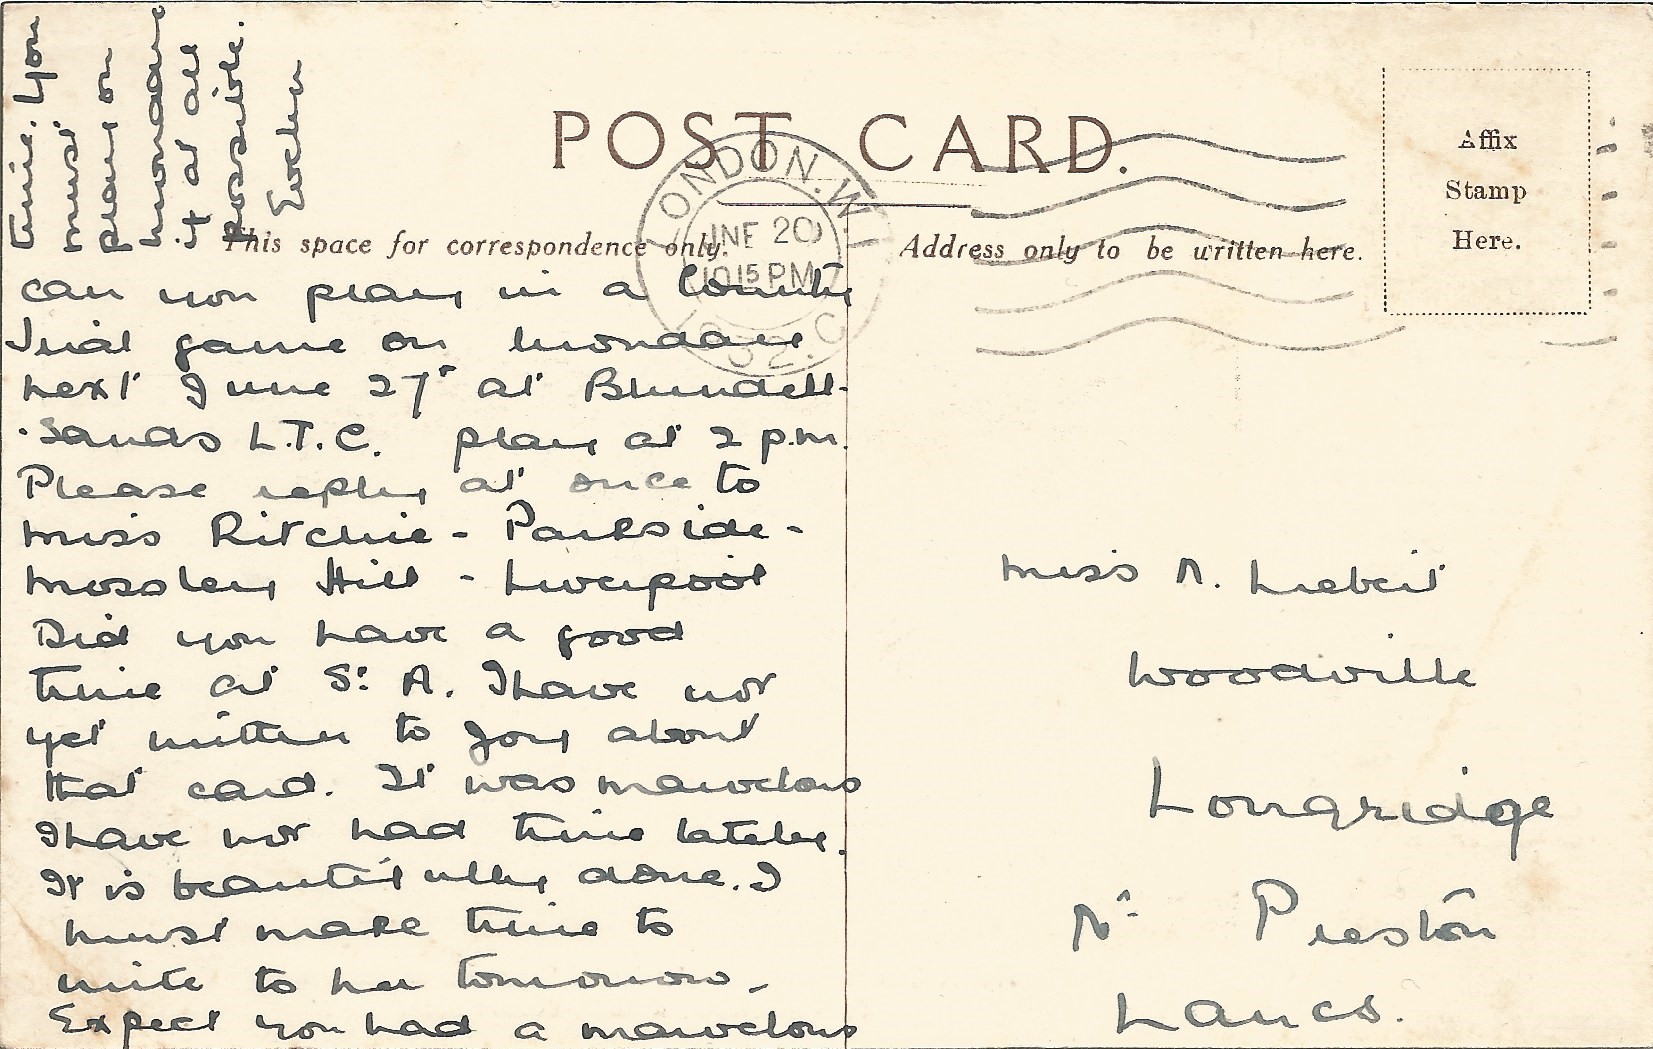 POST CARD.
Affix
Stamp
Here.
LONDON. W.1
JNE 20
10 15 PM
This space for correspondence only.
Address only to be written here.
can you play in a County
Trial game on Monday
next June 27th at Blundell-
-sands L.T.C. play at 2 p.m.
Please reply at once to
Miss Ritchie - Parkside -
Mossley Hill - Liverpool
Did you have a good
time at St A. I have not
yet written to Joy about
that card. It was marvelous
I have not had time lately.
It is beautifully done. I
must make time to
write to her tomorrow -
Expect you had a marvelous
time. You
must
play on
Monday
if at all
possible.
Evelyn
Miss N. Liebert
Woodville
Longridge
Nr Preston
Lancs.